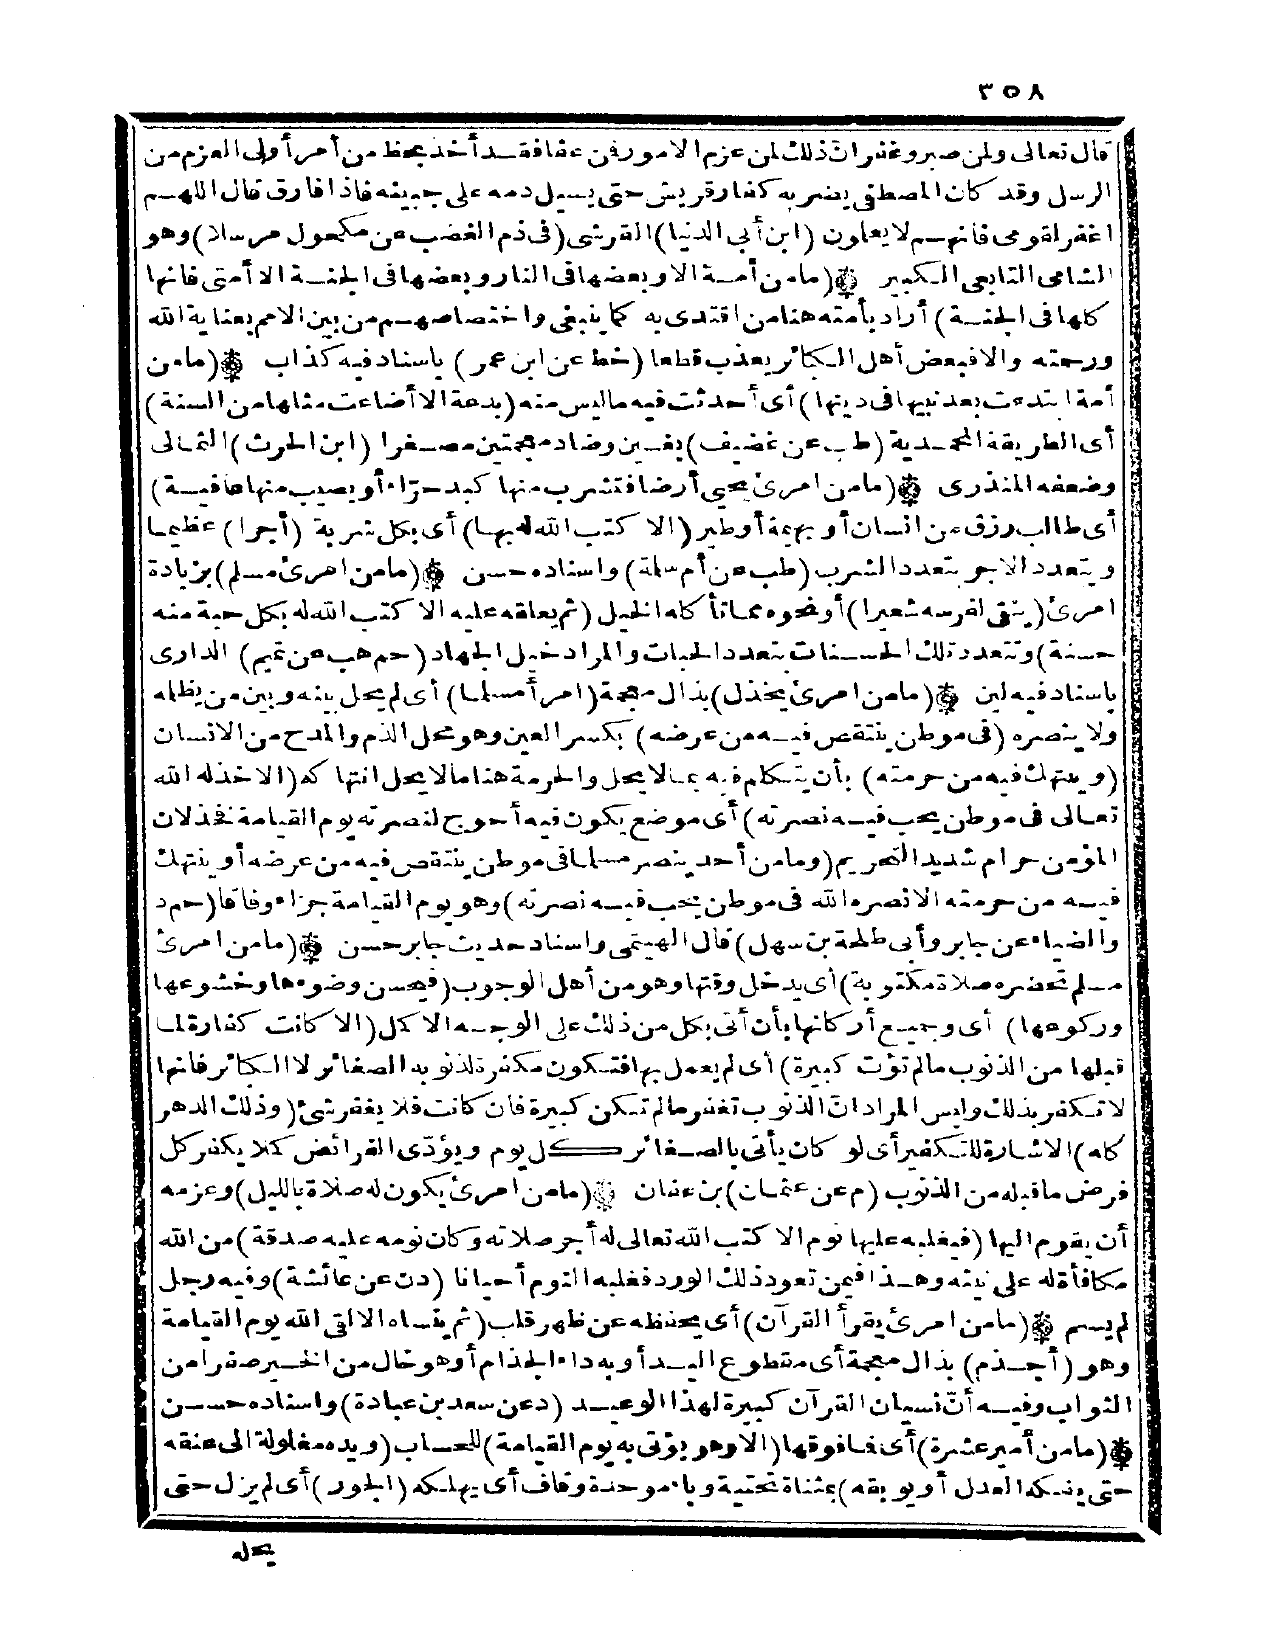 ٣٥٨
قال تعالى ولمن صبر وغفر ان ذلك لمن عزم الامور فمن عفا فقد أخذ بحظ من أمر أولى العزم من
الرسل وقد كان المصطفى يضربه كفار قريش حتى يسيل دمه على جبينه فاذا فارق قال اللهم
اغفر لقومى فانهم لا يعلون (ابن أبى الدنيا) القرشى (فى ذم الغضب عن مكحول مرسلا) وهو
الشامى التابعى الكبير ﴿ (ما من أمة الا وبعضها فى النار وبعضها فى الجنة الا أمتى فانها
كلها فى الجنة) أراد بأمته هنا من اقتدى به كما ينبغى واختصاصهم من بين الامم بعناية الله
ورحمته والا فبعض أهل الكبائر يعذب قطعا (خط عن ابن عمر) باسناد فيه كذاب ﴿ (ما من
أمة ابتدعت بعد نبيها فى دينها) أى أحدثت فيه ما ليس منه (بدعة الا أضاعت مثلها من السنة)
أى الطريقة المحمدية (طب عن غضيف) بغين وضاد معجمتين مصغرا (ابن الحرث) الثمالى
وضعفه المنذرى ﴿ (ما من امرئ يحيى أرضا فتشرب منها كبد حرّاء أو يصيب منها عافية)
أى طالب رزق من انسان أو بهيمة أو طير (الا كتب الله له بها) أى بكل شربة (أجرا) عظيما
ويتعدد الاجر بتعدد الشرب (طب عن أم سلة) واسناده حسن ﴿ (ما من امرئ مسلم) بزيادة
امرئ (ينقى لفرسه شعيرا) أو نحوه مما تأكله الخيل (ثم يعلقه عليه الا كتب الله له بكل حبة منه
حسنة) وتتعدد تلك الحسنات بتعدد الحبات والمراد خيل الجهاد (حم هب عن تميم) الدارى
باسناد فيه لين ﴿ (ما من امرئ يخذل) بذال معجمة (امرأ مسلما) أى لم يحل بينه وبين من يظله
ولا ينصره (فى موطن ينتقص فيه من عرضه) بكسر العين وهو محل الذم والمدح من الانسان
(وينتهك فيه من حرمته) بأن يتكلم فيه بما لا يحل والحرمة هنا ما لا يحل انتهاكه (الا خذله الله
تعالى فى موطن يحب فيه نصرته) أى موضع يكون فيه أحوج لنصرته يوم القيامة فخذلان
المؤمن حرام شديد التحريم (وما من أحد ينصر مسلما فى موطن ينتقص فيه من عرضه أو ينتهك
فيه من حرمته الا نصره الله فى موطن يحب فيه نصرته) وهو يوم القيامة جزاء وفاقا (حم د
والضياء عن جابر وأبى طلحة بن سهل) قال الهيتمى واسناد حديث جابر حسن ﴿ (ما من امرئ
مسلم تحضره صلاة مكتوبة) أى يدخل وقتها وهو من أهل الوجوب (فيحسن وضوءها وخشوعها
وركوعها) أى وجميع أركانها بأن أتى بكل من ذلك على الوجه الاكمل (الا كانت كفارة لما
قبلها من الذنوب ما لم تؤت كبيرة) أى لم يعمل بها فتكون مكفرة لذنوبه الصغائر لا الكبائر فانها
لا تكفر بذلك وليس المراد ان الذنوب تغفر ما لم تكن كبيرة فان كانت فلا يغفر شئ (وذلك الدهر
كله) الاشارة للتكفير أى لو كان يأتى بالصغائر كل يوم ويؤدّى الفرائض كملا يكفر كل
فرض ما قبله من الذنوب (م عن عثمان) بن عفان ﴿ (ما من امرئ يكون له صلاة بالليل) وعزمه
أن يقوم اليها (فيغلبه عليها نوم الا كتب الله تعالى له أجر صلاته وكان نومه عليه صدقة) من الله
مكافأة له على نيته وهذا فيمن تعود ذلك الورد فغلبه النوم أحيانا (دن عن عائشة) وفيه رجل
لم يسم ﴿ (ما من امرئ يقرأ القرآن) أى يحفظه عن ظهر قلب (ثم ينساه الا لقى الله يوم القيامة
وهو (أجذم) بذال معجمة أى مقطوع اليد أو به داء الجذام أو هو خال من الخير صفرا من
الثواب وفيه أن نسيان القرآن كبيرة لهذا الوعيد (د عن سعد بن عبادة) واسناده حسن
﴿ (ما من أمير عشرة) أى فما فوقها (الا وهو يؤتى به يوم القيامة) للحساب (ويده مغلولة الى عنقه
حتى يفكه العدل أو يوبقه) بمثناة تحتية وباء موحدة وقاف أى يهلكه (الجور) أى لم يزل حتى
يحله